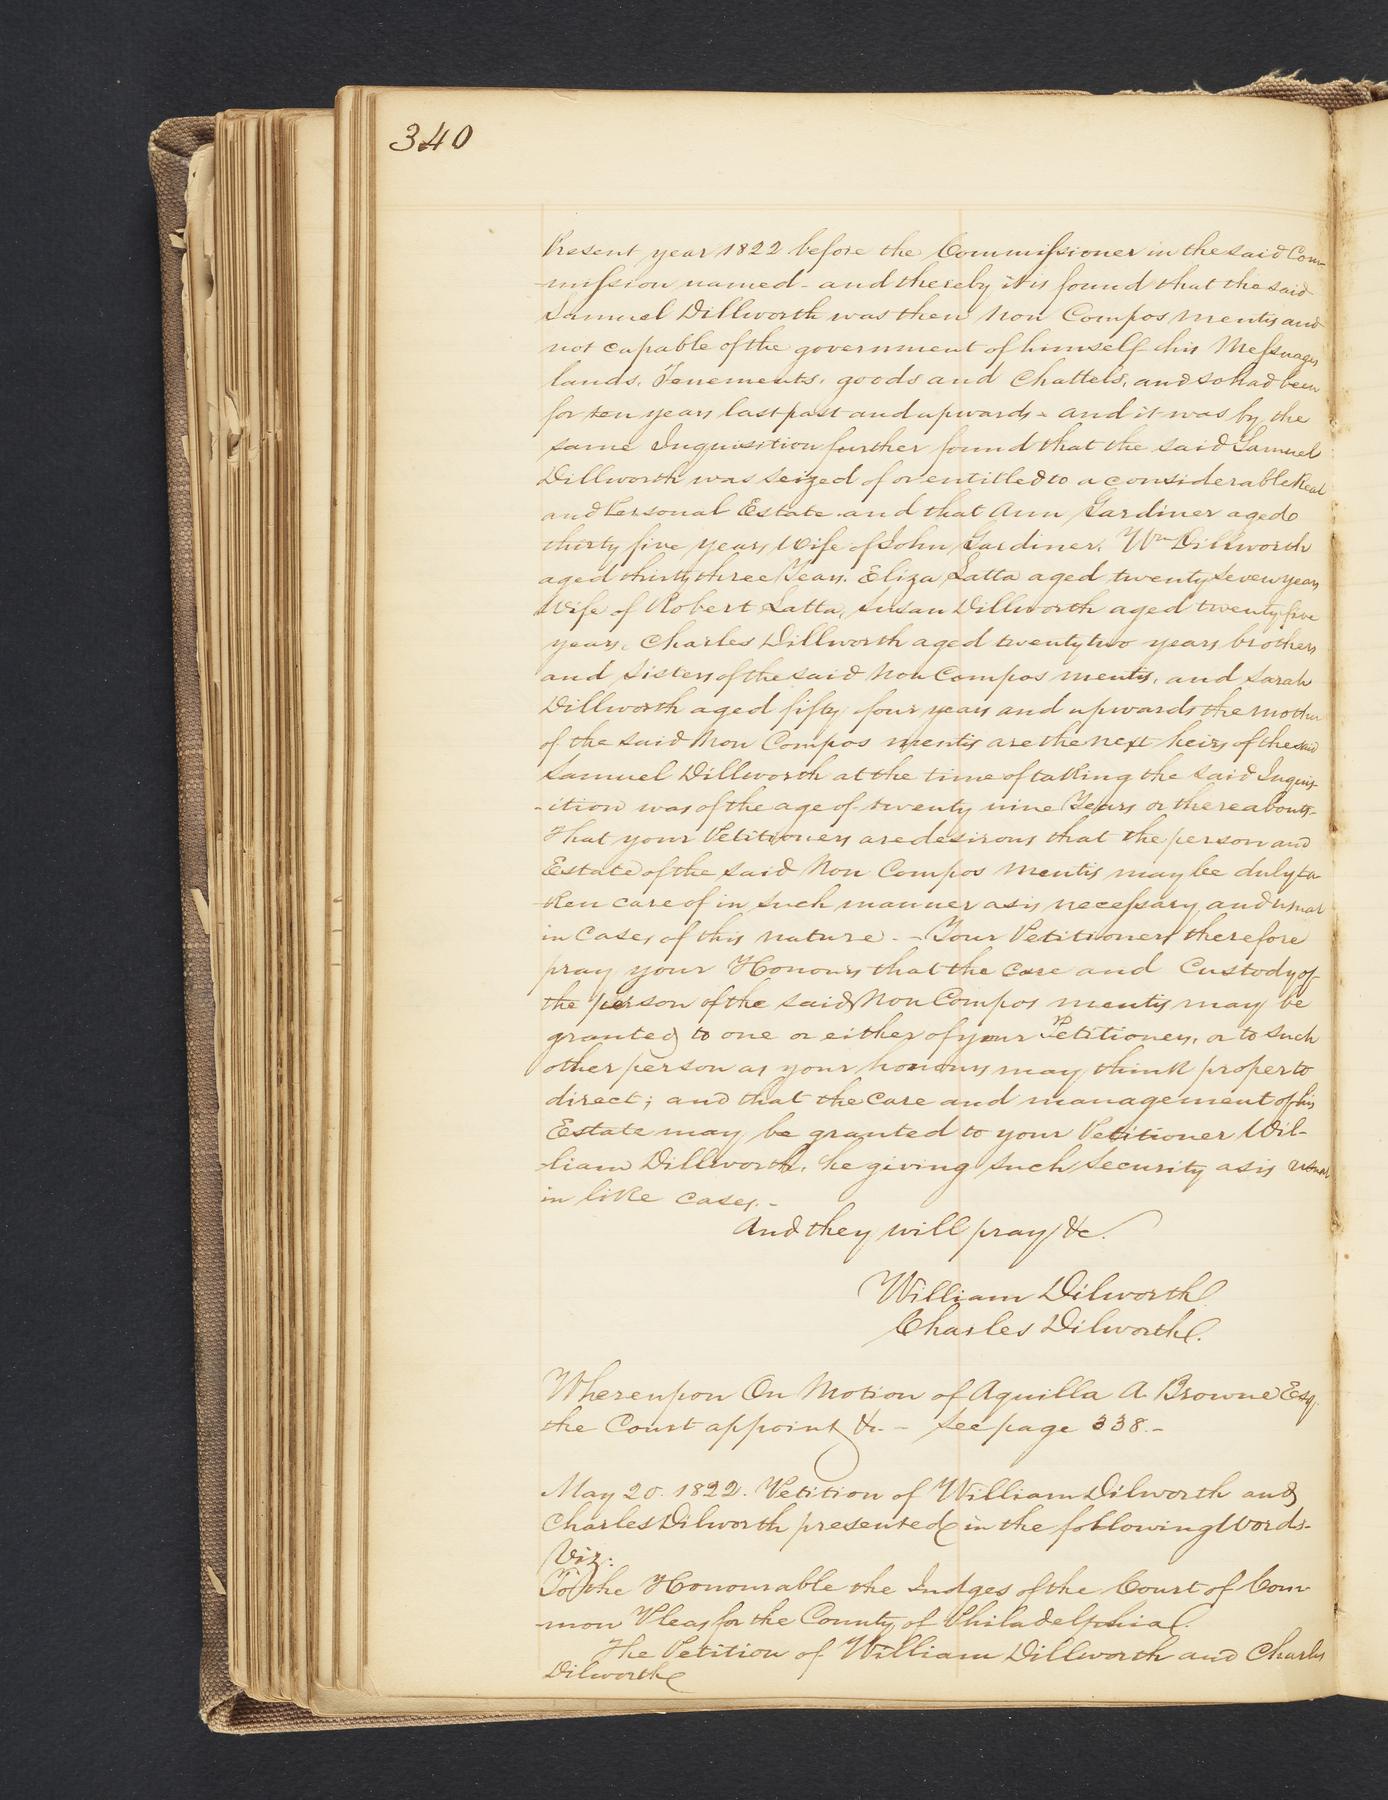 340
Present year 1822 before the Commissioner in the said Com-
-mission named - and thereby it is found that the said
Samuel Dillworth was then Non Compos Mentis and
not capable of the government of himself his Messuages
lands, Tenements, goods and Chattels, and so had been
for ten years last past and upwards - and it was by the
same Inquisition further found that the said Samuel
Dillworth was Seized of or entitled to a considerable Real
and Personal Estate and that Ann Gardiner aged
thirty five years, Wife of John Gardiner, Wm Dillworth
aged thirty three Years. Eliza Latta aged twenty seven years
Wife of Robert Latta, Susan Dillworth aged twenty five
years, Charles Dillworth aged twenty two years brothers
and Sisters of the said Non Compos mentis, and Sarah
Dillworth aged fifty four years and upwards the mother
of the said Non Compos mentis are the next heirs of the said
Samuel Dillworth at the time of taking the said Inquis-
-ition was of the age of twenty nine Years or thereabouts-
That your Petitioners are desirous that the person and
Estate of the said Non Compos Mentis may be duly ta-
-ken care of in such manner as is necessary and usual
in Cases of this nature. - Your Petitioners therefore
pray your Honours that the Care and Custody of
the person of the said Non Compos mentis may be
granted to one or either of your Petitioners, or to such
other person as your honours may think proper to
direct; and that the Care and management of his
Estate may be granted to your Petitioner Wil-
-liam Dillworth, he giving such Security as is usual
in like cases. -
And they will pray &c.
William Dilworth
Charles Dilworth.
Whereupon On Motion of Aquilla A. Browne Esq.
the Court appoint &c. - See page 338. -
May 20. 1822. Petition of William Dilworth and
Charles Dilworth presented in the following Words-
Viz:
To the Honourable the Judges of the Court of Com-
-mon Pleas for the County of Philadelphia.
The Petition of William Dillworth and Charles
Dilworth